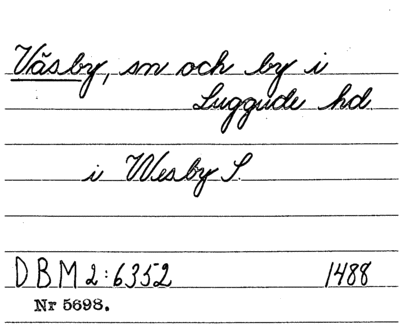 Väsby, sn och by i
Luggude hd
i Wesby S.
DBM 2:6352 1488
Nr 5698.